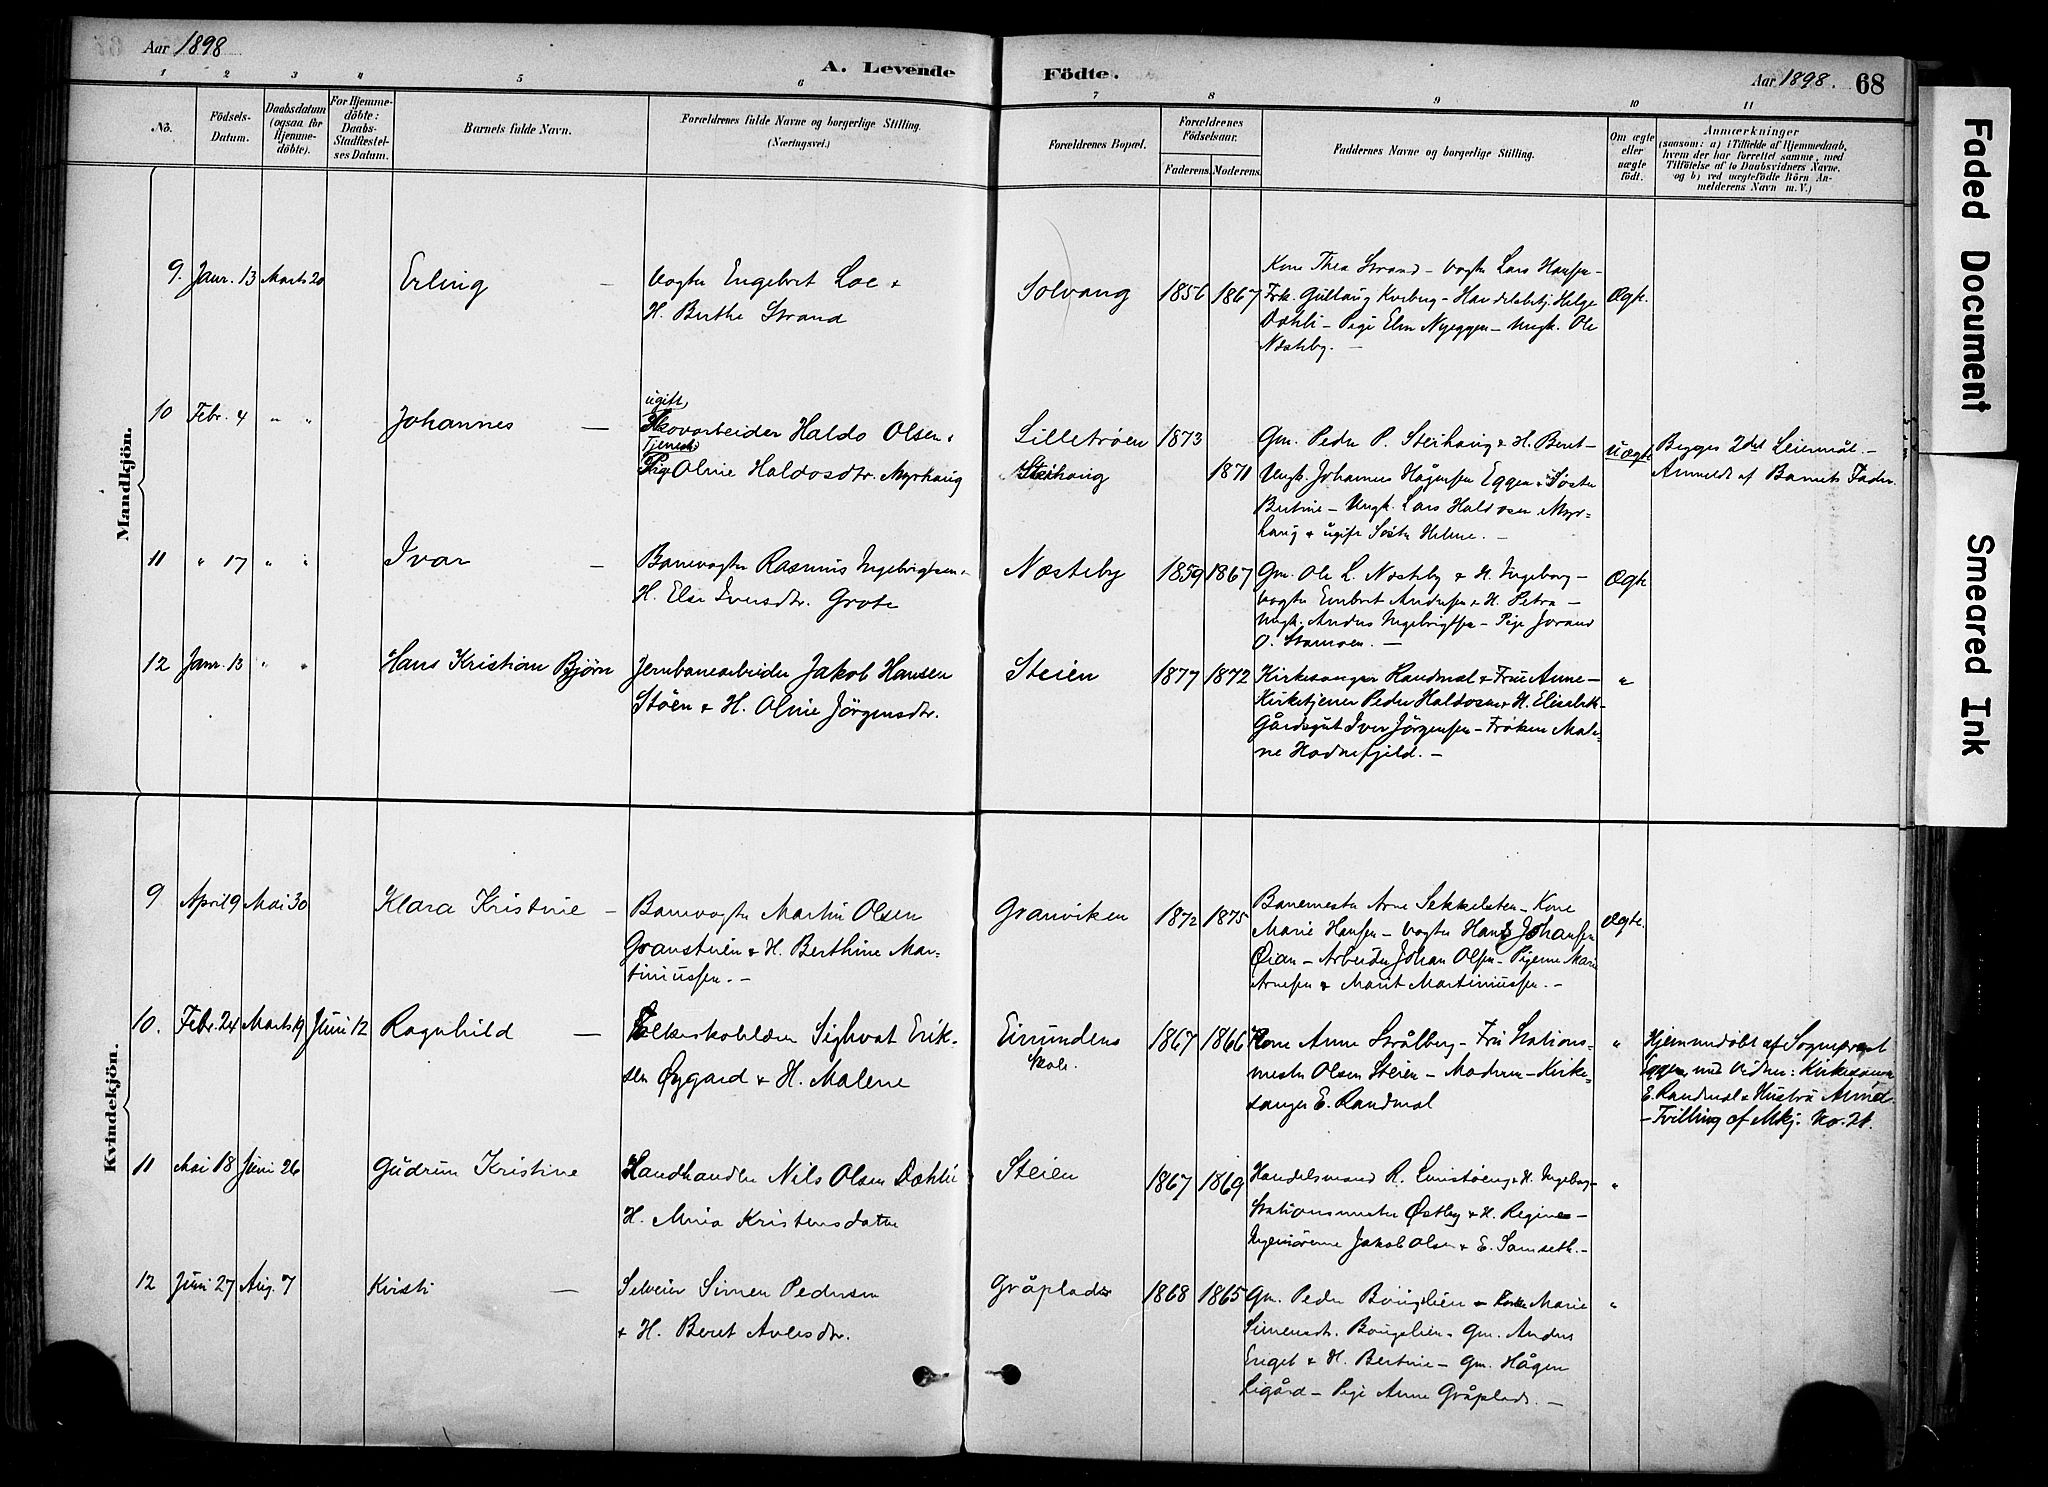 Aar 1898
A. Levende Födte.
Aar 1898. 68
1 2 3 4 5 6 7 8 9 10 11
No.
Födsels-
Datum.
Daabsdatum
(ogsaa for
Hjemme-
döbte).
For Hjemme-
döbte:
Daabs-
Stadfestel-
ses Datum.
Barnets fulde Navn.
Forældrenes fulde Navne og borgerlige Stilling.
(Næringsvei.)
Forældrenes Bopæl.
Forældrenes
Födselsaar.
Faderens. Moderens.
Faddernes Navne og borgerlige Stilling.
Om ægte
eller
uægte
födt.
Anmærkninger
(saasom: a) i Tilfælde af Hjemmedaab,
hvem der har forrettet samme, med
Tilföielse af to Daabsvidners Navne,
og b) ved uægtefödte Börn An-
melderens Navn m. V.)
Mandkjön.
9. Janr. 13 Marts 20
Erling
Vogter Engebret Loe &
H. Berthe Strand
Solvang
1856 1867
Kone Thea Strand – Vogter Lars Hansen –
Frk. Gullaug Kveberg – Handelsbetj. Helge
Dæhli – Pige Elen Nyeggen – Ungk. Ole
Næsteby. –
Ægte.
10 Febr. 4 " "
Johannes –
ugift,
Skovarbeider Haldo Olsen &
Tjeneste
Pige Oline Haldosdtr. Myrhaug
Lilletrøen
Steihaug
1873
1871
Gm. Peder P. Steihaug & H. Beret –
Ungk. Johannes Hågensen Eggen & Søster
Bertine – Ungk. Lars Haldosen Myr-
haug & ugift Søster Helene. –
Uægte
Begges 2det Leiermål. –
Anmeldt af Barnets Fader.
11 " 17 " "
Ivar –
Banevogter Rasmus Ingebrigtsen &
H. Else Iversdtr. Grote
Næsteby
1859 1867
Gm. Ole L. Næsteby & H. Ingeborg –
Vogter Embret Andersen & H. Petra –
Ungk. Anders Ingebrigtsen – Pige Jorand
O. Stamoen. –
Ægte
12 Janr. 13 " "
Hans Kristian Bjørn
Jernbanearbeider Jakob Hansen
Støen & H. Oline Jörgensdtr.
Steien
1877 1872
Kirkesanger Randmæl & Frue Anne –
Kirketjener Peder Haldosen & H. Elisabeth –
Gårdsgut Iver Jörgensen – Frøken Male-
ne Hodnefjeld. –
"
Kvindekjön.
9 April 9 Mai 30
Klara Kristine –
Banevogter Martin Olsen
Gransteien & H. Berthine Mar-
tiniussen. –
Granviken
1872 1875
Banemester Arne Sekkelsten – Kone
Marie Hansen – Vogter Hans Johansen
Øian – Arbeider Johan Olsen – Pigerne Marie
Arnesen & Marit Martiniussen. –
Ægte.
10. Febr. 24 Marts 19 Juni 12
Ragnhild –
Folkeskolelærer Sighvat Erik-
sen Øygard & H. Malene
Eimundens
Skole.
1867 1866
Kone Anne Strålberg – Fru Stations-
mester Olsen Steien – Moderen – Kirke-
sanger E. Randmæl
"
Hjemmedöbt af Sogneprest
Eggen med Vidner: Kirkesanger
E. Randmæl & Hustru Anne.
– Tvilling af Mkj. No. 21.
11 Mai 18 Juni 26
Gudrun Kristine
Landhandler Nils Olsen Dæhlie
H. Mina Kristensdatter
Steien
1867 1869
Handelsmand R. & H. Ingeborg –
Stationsmester Østby & H. Regine –
Ingeniörerne Jakob Olsen & E. Samseth. –
"
12 Juni 27 Aug. 7
Kristi –
Selveier Simen Pedersen
& H. Beret Avlesdtr.
Gråpladsen
1868 1865
Gm. Peder Bouglien – Marie
Simensdtr. Bouglien – Gm. Anders
Enget & H. Bertine – Gm. Hågen
Ligård – Pige Anne Gråplads. –
"
Faded Document
Smeared Ink